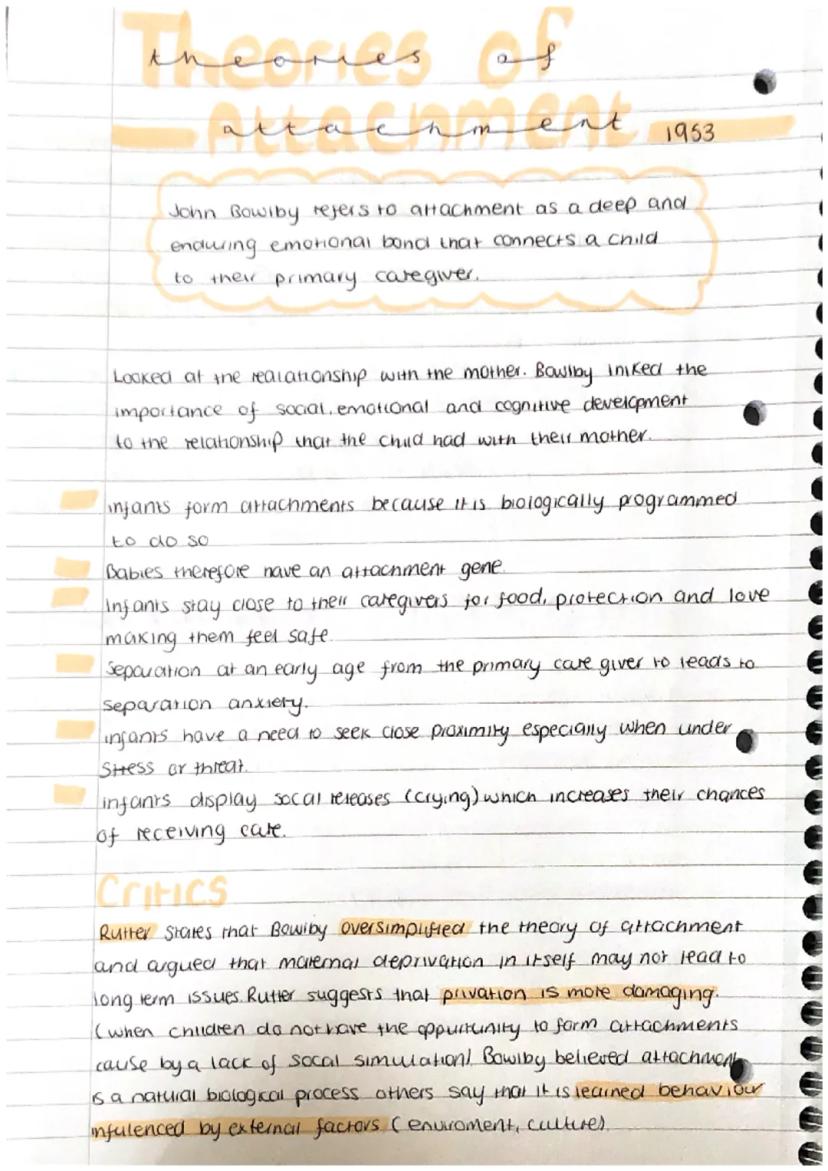 Theories of
theories of
Attachment
attachment 1953
John Bowlby refers to attachment as a deep and
enduring emotional bond that connects a child
to their primary caregiver.
Looked at the realationship with the mother. Bowlby linked the
importance of social, emotional and cognitive development
to the relationship that the child had with their mother.
infants form attachments because it is biologically programmed
to do so
Babies therefore have an attachment gene.
Infants stay close to their caregivers for food, protection and love
making them feel safe.
Separation at an early age from the primary care giver to leads to
separation anxiety.
infants have a need to seek close proximity especially when under
stress or threat.
infants display socal releases (crying) which increases their chances
of receiving care.
Critics
Rutter states that Bowlby oversimplified the theory of attachment
and argued that maternal deprivation in itself may not lead to
long term issues. Rutter suggests that privation is more damaging.
(when children do not have the oppurtunity to form attachments
cause by a lack of socal simulation). Bowlby believed attachment
is a natural biological process others say that it is learned behaviour
infulenced by external factors (enviroment, culture).